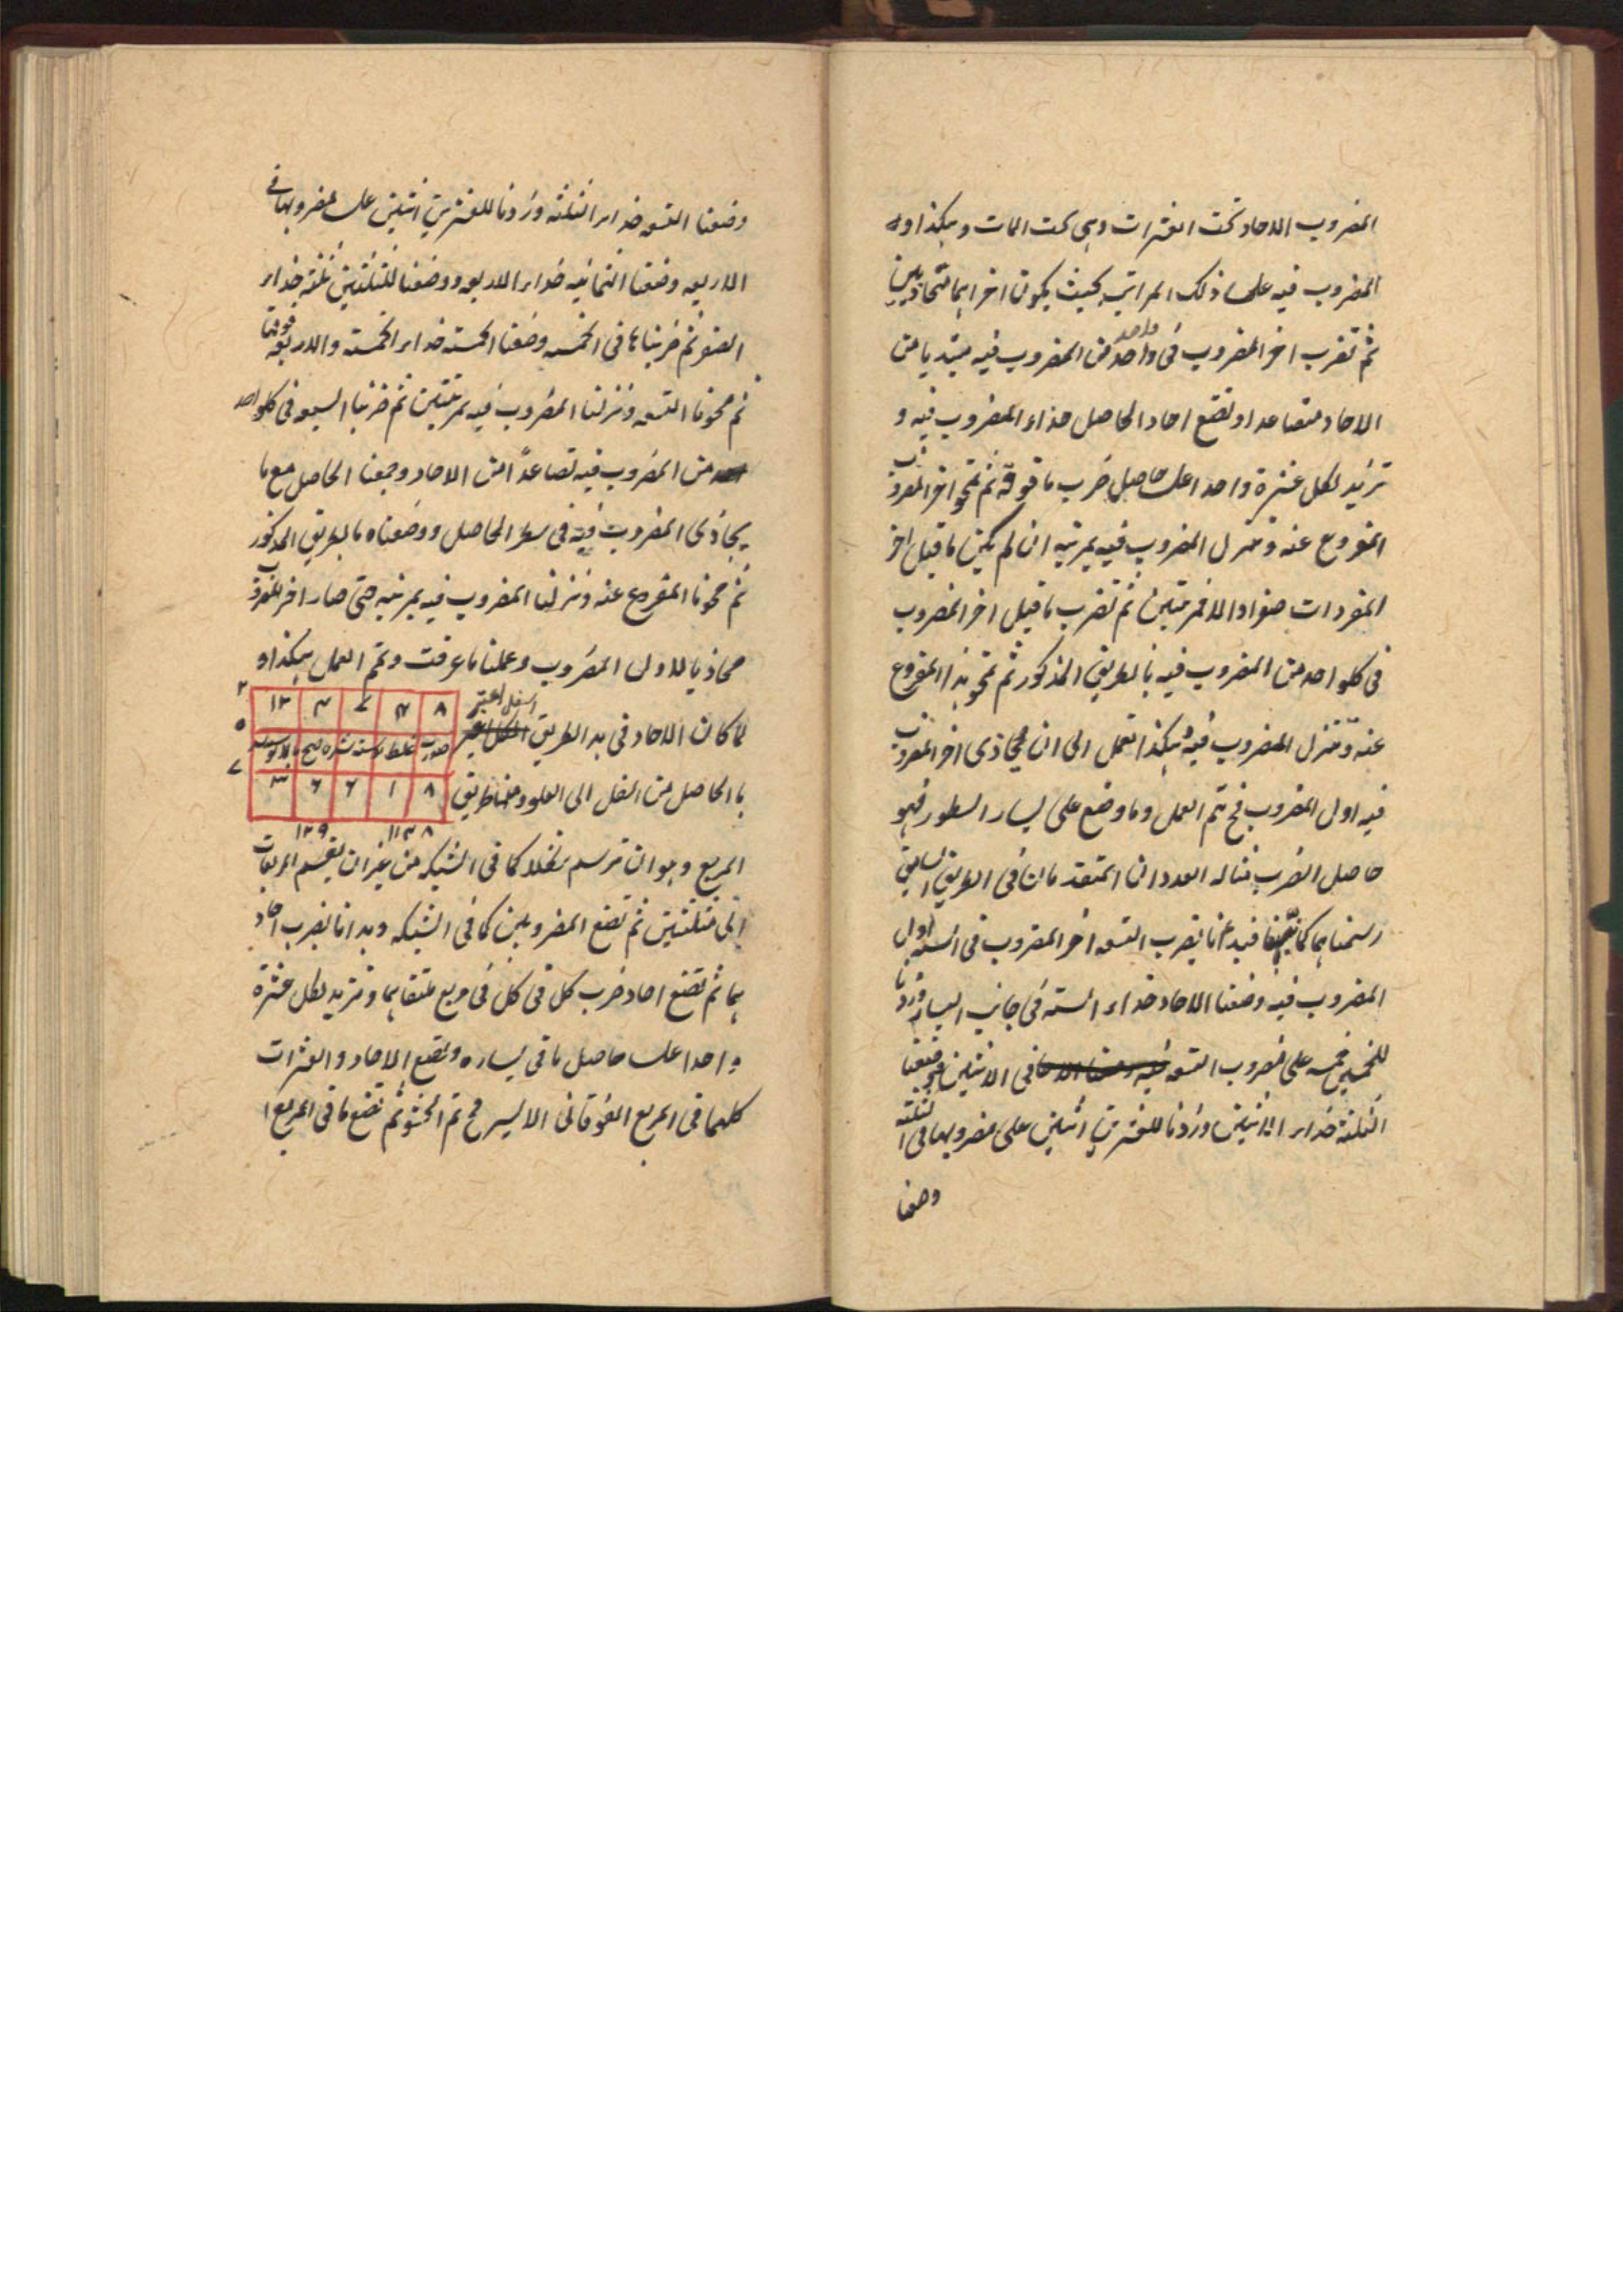 المضروب الاحاد تحت العشرات وهى تحت المات وهكذا وله
المضروب فيه على ذلك المراتب بحيث يكون اخراهما متحاذيين
ثم تضرب اخر المضروب فى واحد واحد من المضروب فيه مبتديا من
الاحاد متصاعدا وتضع احاد الحاصل حذاء المضروب فيه و
تزيد لكل عشرة واحدا على حاصل ضرب ما فوقه ثم تمحو اخر المضروب
المفروع عنه وتنزل المضروب فيه بمرتبة ان لم يكن ما قبل اخر
المفردات صفرا والا فمرتبتين ثم تضرب ما قبل اخر المضروب
فى كلواحد من المضروب فيه بالطريق المذكور ثم تمحو هذا المفروع
عنه وتنزل المضروب فيه وهكذا تعمل الى ان يحاذى اخر المضروب
فيه اول المضروب فح يتم العمل وما وضع على يسار السطور فهو
حاصل الضرب مثاله العددان المتقدمان فى الطريق السابق
رسمناهما كما فيدءنا بضرب التسعه اخر المضروب فى السته اول
المضروب فيه وضعنا الاحاد حذاء السته فى جانب اليسار وزدنا
للخمسين خمسه على مضروب التسعه فى الاثنين فوضعنا
الثلثة حذاء الاثنين وزدنا للعشرين اثنين على مضروبها فى الثلثه
وضعنا
وضعنا التسعه حذاء الثلثه وزدنا للعشرين اثنين على مضروبها فى
الاربعه وضعنا الثمانيه حذاء الاربعه ووضعنا للثلثين ثلثة حذاء
الصفر ثم ضربناها فى الخمسه وضعنا الخمسة حذاء الخمسة والاربعه فوقها
ثم محونا التسعه ونزلنا المضروب فيه بمرتبتين ثم ضربنا السبعه فى كلواحد
من المضروب فيه تصاعدًا من الاحاد وجمعنا الحاصل مع ما
يحاذى المضروب فيه فى سطر الحاصل ووضعناه بالطريق المذكور
ثم محونا المفروع عنه ونزلنا المضروب فيه بمرتبه حتى صار اخر المضروب
محاذيا للاول المضروب وعملنا ما عرفت وتم العمل هكذا و
لما كان الاحاد فى هذا الطريق اسفل اعتبر
۸ ۴ ۷ ۳ ۱۲ ۲
۵
صورت غلط است
۸ ۱ ۶ ۶ ۳ ۷
۱۱۳۸ ۱۲۹
بالحاصل من السفل الى العلو ومنها طريق
المربع وهو ان ترسم شكلا كما فى الشبكه من غير ان يقسم المربعات
الى مثلثين ثم تضع المضروبين كما فى الشبكه وبدانا بضرب احاد
هما ثم تضع احاد ضرب كل فى كل فى مربع ملتقاهما وتزيد لكل عشرة
واحدا على حاصل ما فى يساره وتضع الاحاد والعشرات
كلهما فى المربع الفوقانى الايسر فح تم الحشو ثم تضع ما فى المربع ا